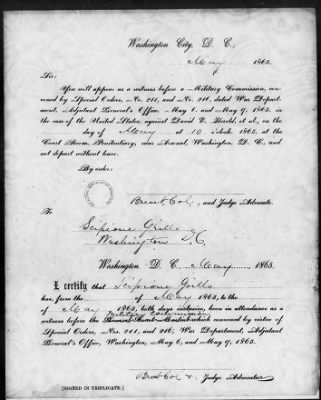 Washington City, D. C.,
May 1865.
Sir:
You will appear as a witness before a Military Commission, con-
vened by Special Orders, Nos. 211, and No. 216, dated War Depart-
ment, Adjutant General's Office, May 6, and May 9, 1865, in
the case of the United States, against David E. Herold, et al., on the
day of May at 10 o'clock, 1865, at the
Court Room, Penitentiary, near Arsenal, Washington, D. C., and
not depart without leave.
By order:
Brevet Col., and Judge Advocate.
To
Scipione Grillo
Washington D.C.
Washington, D. C. May 1865.
I certify that Scipione Grillo
has, from the of May 1865, to the
of May 1865, both days inclusive, been in attendance as a
witness before the Military Commission which convened by virtue of
Special Orders, Nos. 211, and 216, War Department, Adjutant
General's Office, Washington, May 6, and May 9, 1865.
Brevet Col & Judge Advocate.
[SIGNED IN TRIPLICATE.]